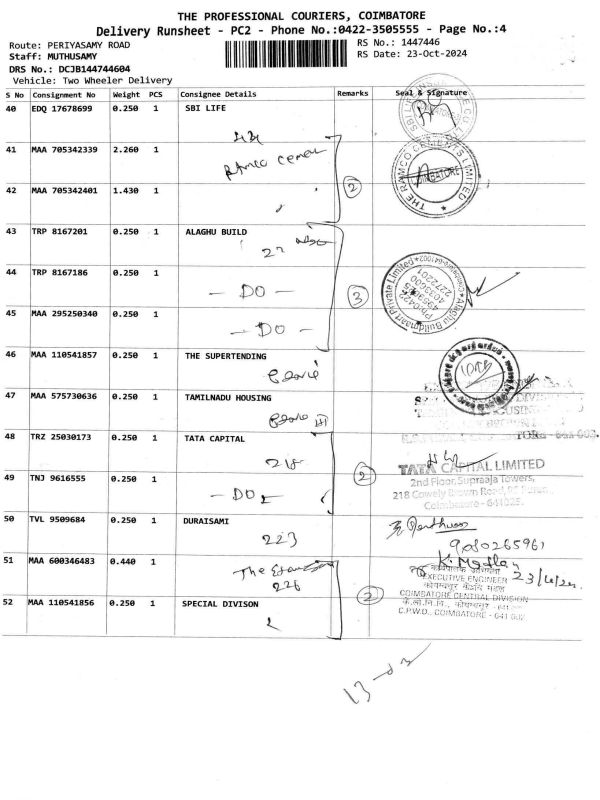 THE PROFESSIONAL COURIERS, COIMBATORE
Delivery Runsheet - PC2 - Phone No.:0422-3505555 - Page No.:4
Route: PERIYASAMY ROAD
RS No.: 1447446
Staff: MUTHUSAMY
RS Date: 23-Oct-2024
DRS No.: DCJB144744604
Vehicle: Two Wheeler Delivery
S No Consignment No Weight PCS Consignee Details Remarks Seal & Signature
40 EDQ 17678699 0.250 1 SBI LIFE
41 MAA 705342339 2.260 1 Ramco Cemen
THE RAMCO CEMENTS LIMITED
COIMBATORE
42 MAA 705342401 1.430 1
2
43 TRP 8167201 0.250 1 ALAGHU BUILD
22
44 TRP 8167186 0.250 1 - DO -
3
Alaghu Buildmaart Private Limited
45 MAA 295250340 0.250 1 - DO -
46 MAA 110541857 0.250 1 THE SUPERTENDING
47 MAA 575730636 0.250 1 TAMILNADU HOUSING
48 TRZ 25030173 0.250 1 TATA CAPITAL
218
TATA CAPITAL LIMITED
2nd Floor, Supraaja Towers,
218 Cowely Brown Road,
Coimbatore - 641025.
49 TNJ 9616555 0.250 1 - DO -
2
50 TVL 9509684 0.250 1 DURAISAMI
223
51 MAA 600346483 0.440 1 The
226
EXECUTIVE ENGINEER
COIMBATORE CENTRAL DIVISION
C.P.W.D., COIMBATORE - 641 002
52 MAA 110541856 0.250 1 SPECIAL DIVISON
2
13-03